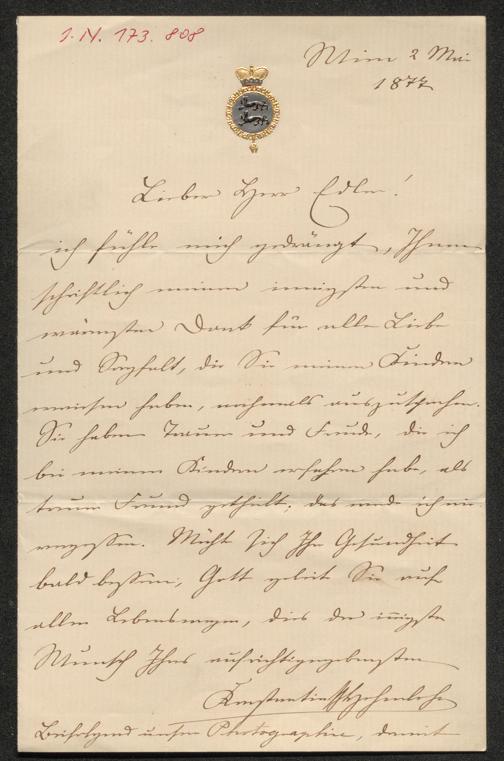 I. N. 173. 808
Wien 2 Mai
1877
Lieber Herr Edler!
ich fühle mich gedrängt, Ihnen
schriftlich meinen innigsten und
wärmsten Dank für alle Liebe
und Sorgfalt, die Sie meinen Kindern
erwiesen haben, nochmals auszusprechen.
Sie haben Trauer und Freude, die ich
bei meinen Kindern erfahren habe, als
treuer Freund getheilt, das werde ich nie
vergessen. Möcht sich Ihr Gesundheit
bald bessern, Gott geleit Sie auf
allen Lebenswegen, dies der innigste
Wunsch Ihres aufrichtigergebensten
Constantin Hohenlohe
Beifolgend unsere Photographien, damit